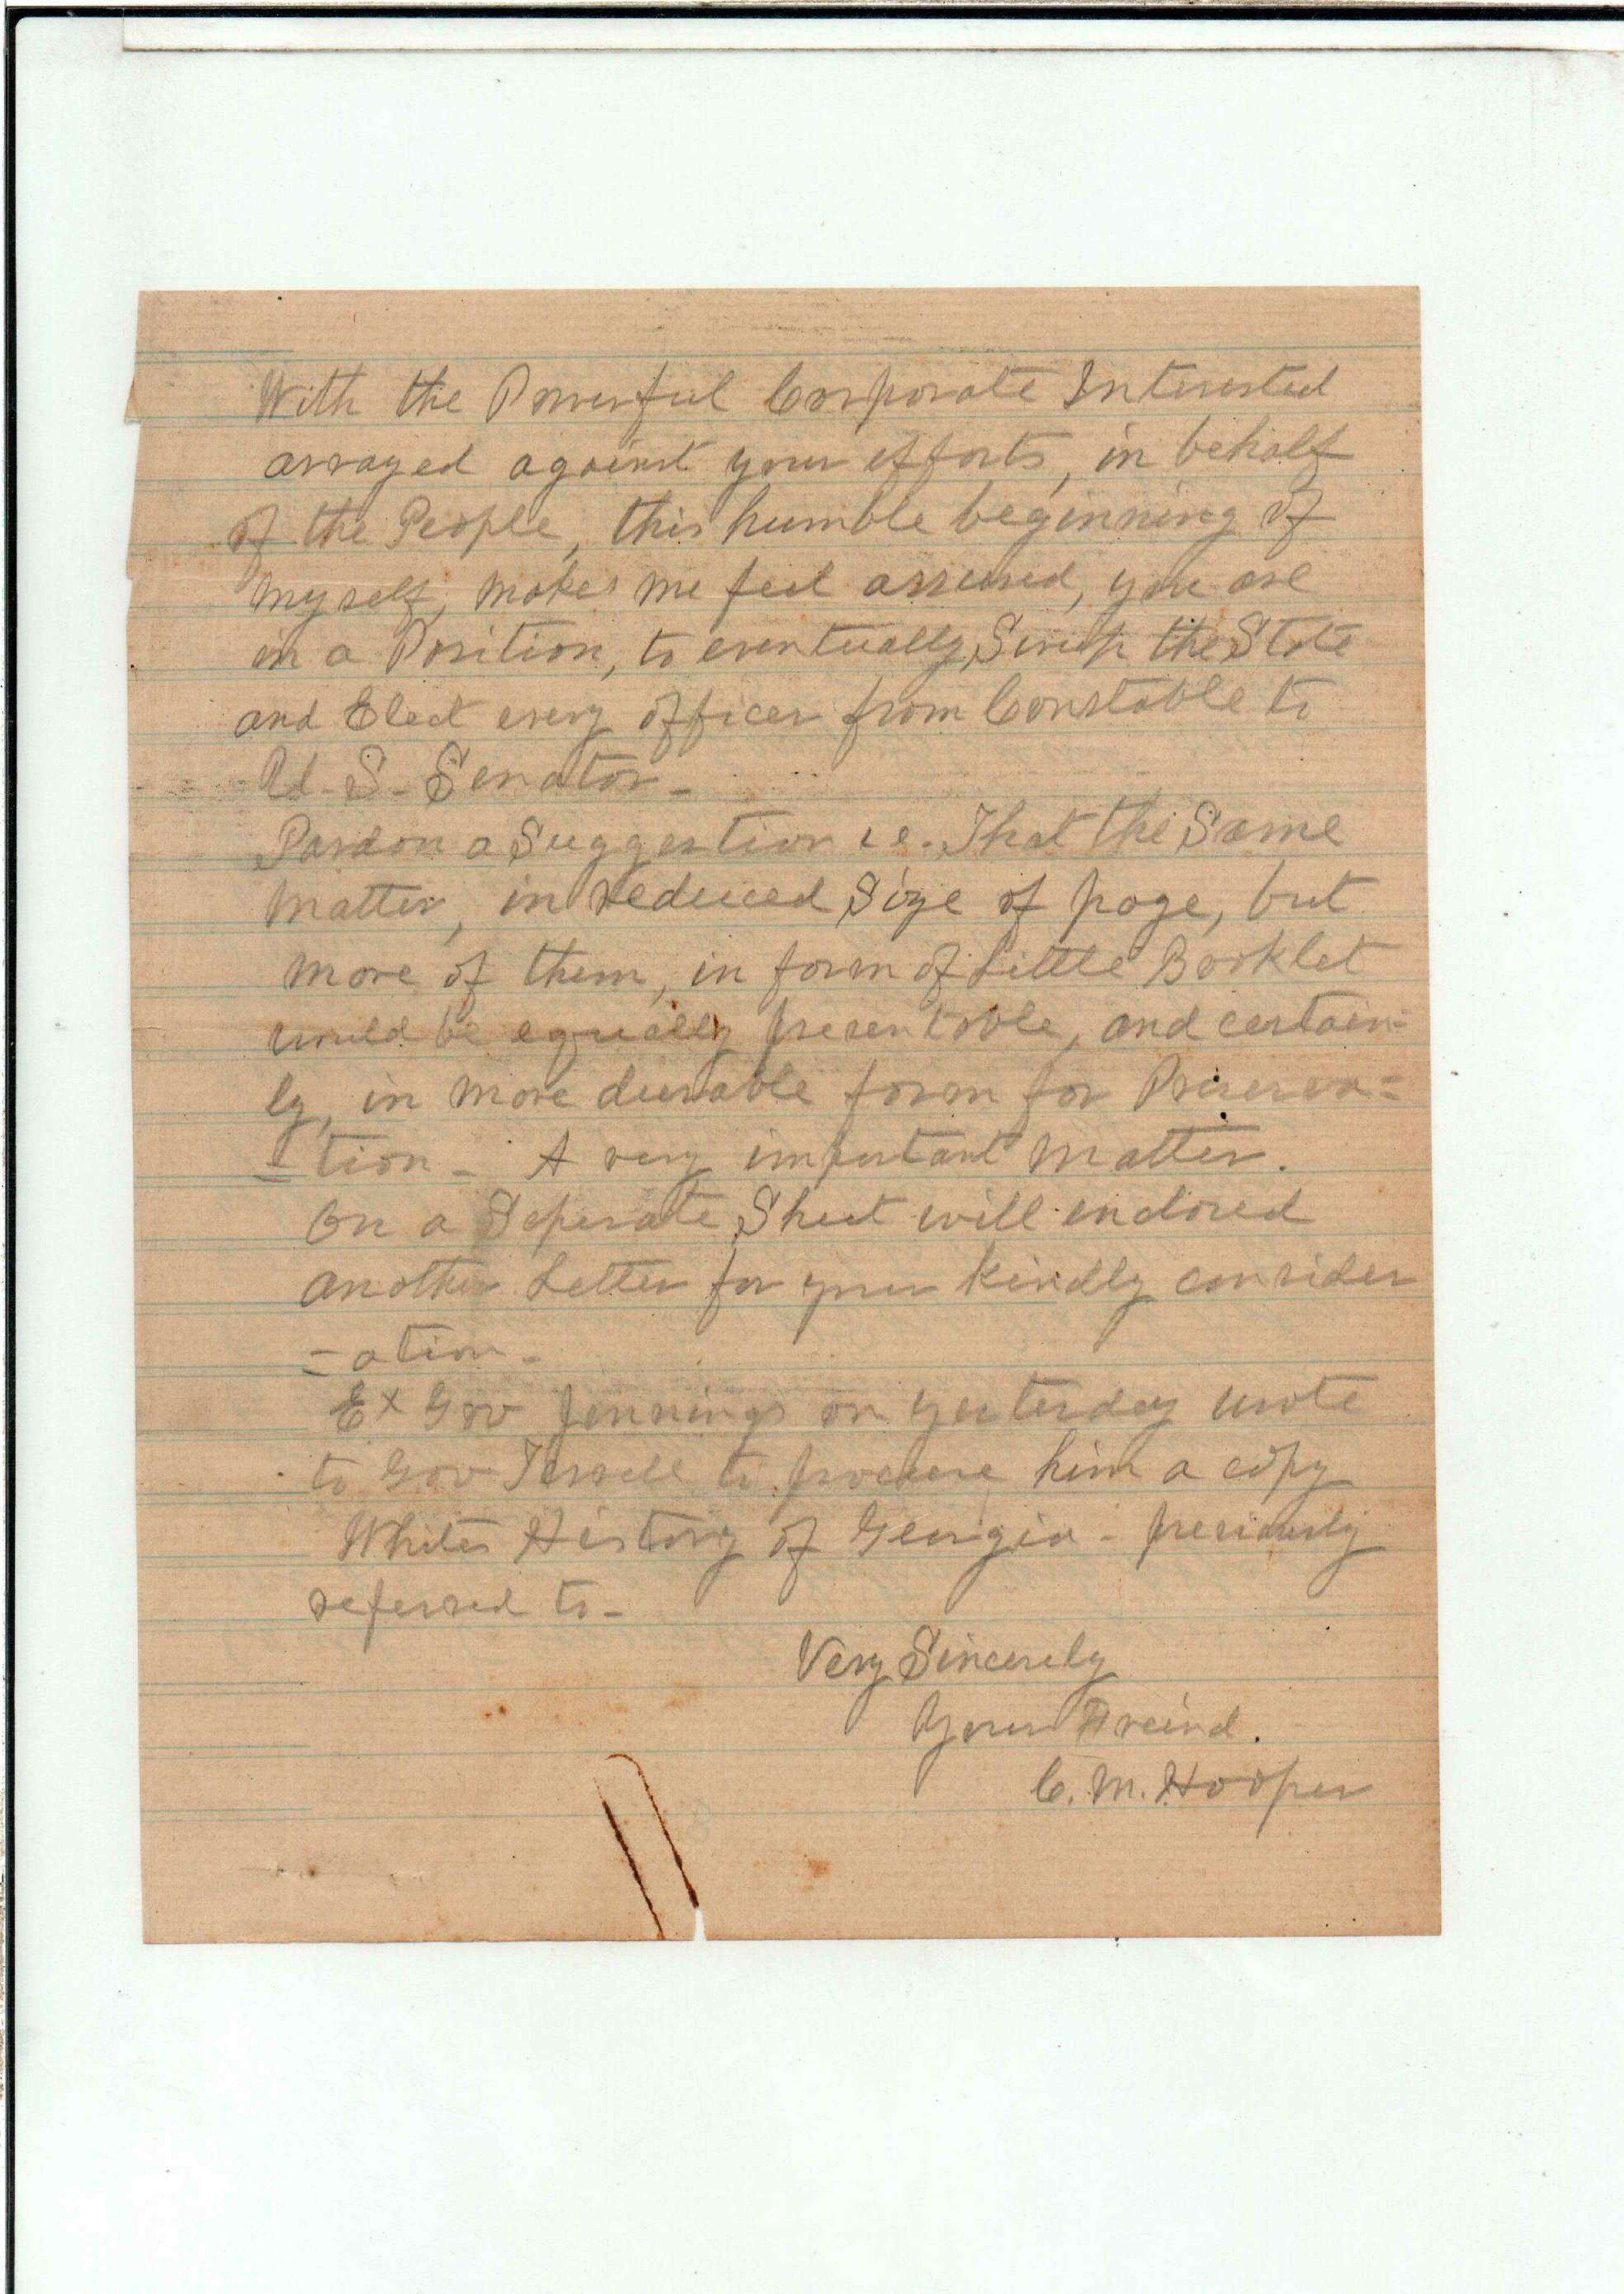 With the Powerful Corporate Interested
arrayed against your efforts, in behalf
of the People, this humble beginning of
myself, makes me feel assured, you are
in a Position, to eventually, Sweep the State
and Elect every officer from Constable to
U.S. Senator -
Pardon a Suggestion i.e. That the Same
matter, in reduced Size of page, but
more of them, in form of Little Booklet
would be equally presentable, and certain=
ly, in more durable form for Preserva=
=tion - A very important matter.
On a Seperate Sheet will endorsed
another Letter for your Kindly consider
=ation -
Ex Gov Jennings on yesterday wrote
to Gov Terrell to procure him a copy
Whites History of Georgia - previously
referred to -
Very Sincerely
Your Freind.
C. M. Hooper